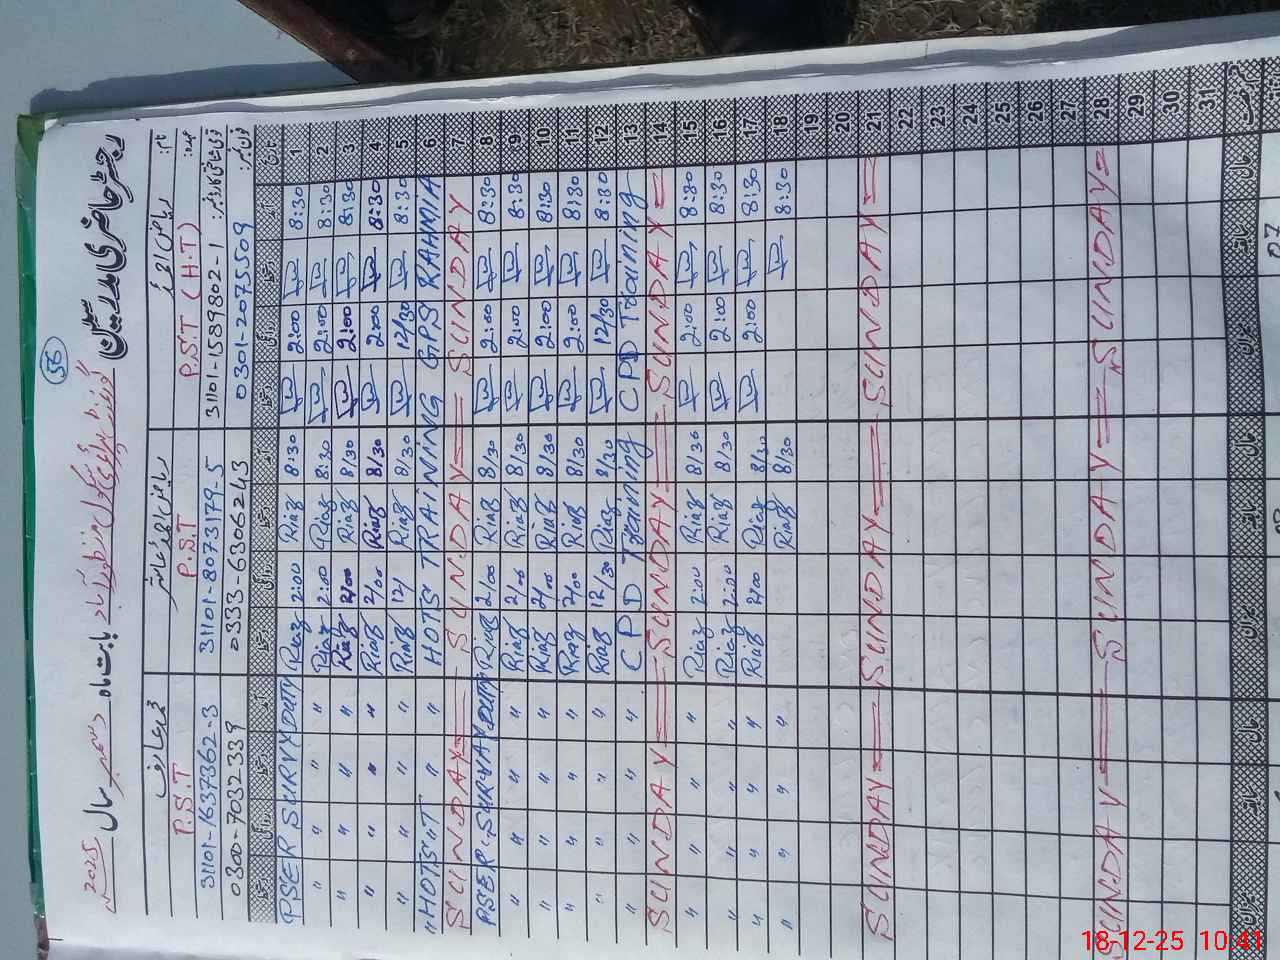 56
رجسٹر حاضری مدرسین گورنمنٹ پرائمری سکول منظور آباد بابت ماہ دسمبر سال 2025
نام: ریاض احمد محمد عارف
عہدہ: P.S.T (H.T) P.S.T P.S.T
قومی شناختی کارڈ نمبر: 31101-1589802-1 31101-8073179-5 31101-1637362-3
فون نمبر: 0301-2075509 0333-6306243 0300-7032339
تاریخ آمد دستخط روانگی دستخط آمد دستخط روانگی دستخط آمد دستخط روانگی دستخط
PSER SURVYDUTY Riaz 2:00 Riaz 8:30 2:00 8:30 1
" " " " Riaz 2:00 Riaz 8:30 2:00 8:30 2
" " " " Riaz 2/00 Riaz 8/30 2:00 8:30 3
" " " " Riaz 2/00 Riaz 8/30 2:00 8:30 4
" " " " Riaz 12/ Riaz 8/30 12/30 8:30 5
" HOTS "T " " HOTS TRAINING GPS RAHMIA 6
SUNDAY SUNDAY SUNDAY 7
PSER SURVAY DUTY Riaz 2/00 Riaz 8/30 2:00 8:30 8
" " " " Riaz 2/00 Riaz 8/30 2:00 8:30 9
" " " " Riaz 2/00 Riaz 8/30 2:00 8:30 10
" " " " Riaz 2/00 Riaz 8/30 2:00 8:30 11
" " " " Riaz 12/30 Riaz 8/30 12/30 8:30 12
" " " " CPD Training CPD Training 13
SUNDAY SUNDAY SUNDAY 14
" " " " Riaz 2:00 Riaz 8/30 2:00 8:30 15
" " " " Riaz 2:00 Riaz 8/30 2:00 8:30 16
" " " " Riaz 2/00 Riaz 8/30 2:00 8:30 17
" " " " Riaz 8/30 8:30 18
19
20
SUNDAY SUNDAY SUNDAY 21
22
23
24
25
26
27
SUNDAY SUNDAY SUNDAY 28
29
30
31
18-12-25 10:41